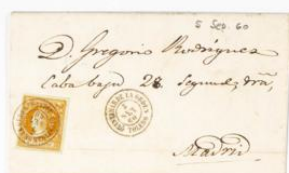 5 Sep. 60
D. Gregorio Rodriguez
Cava baja 28. Segundo, dra,
Madrid